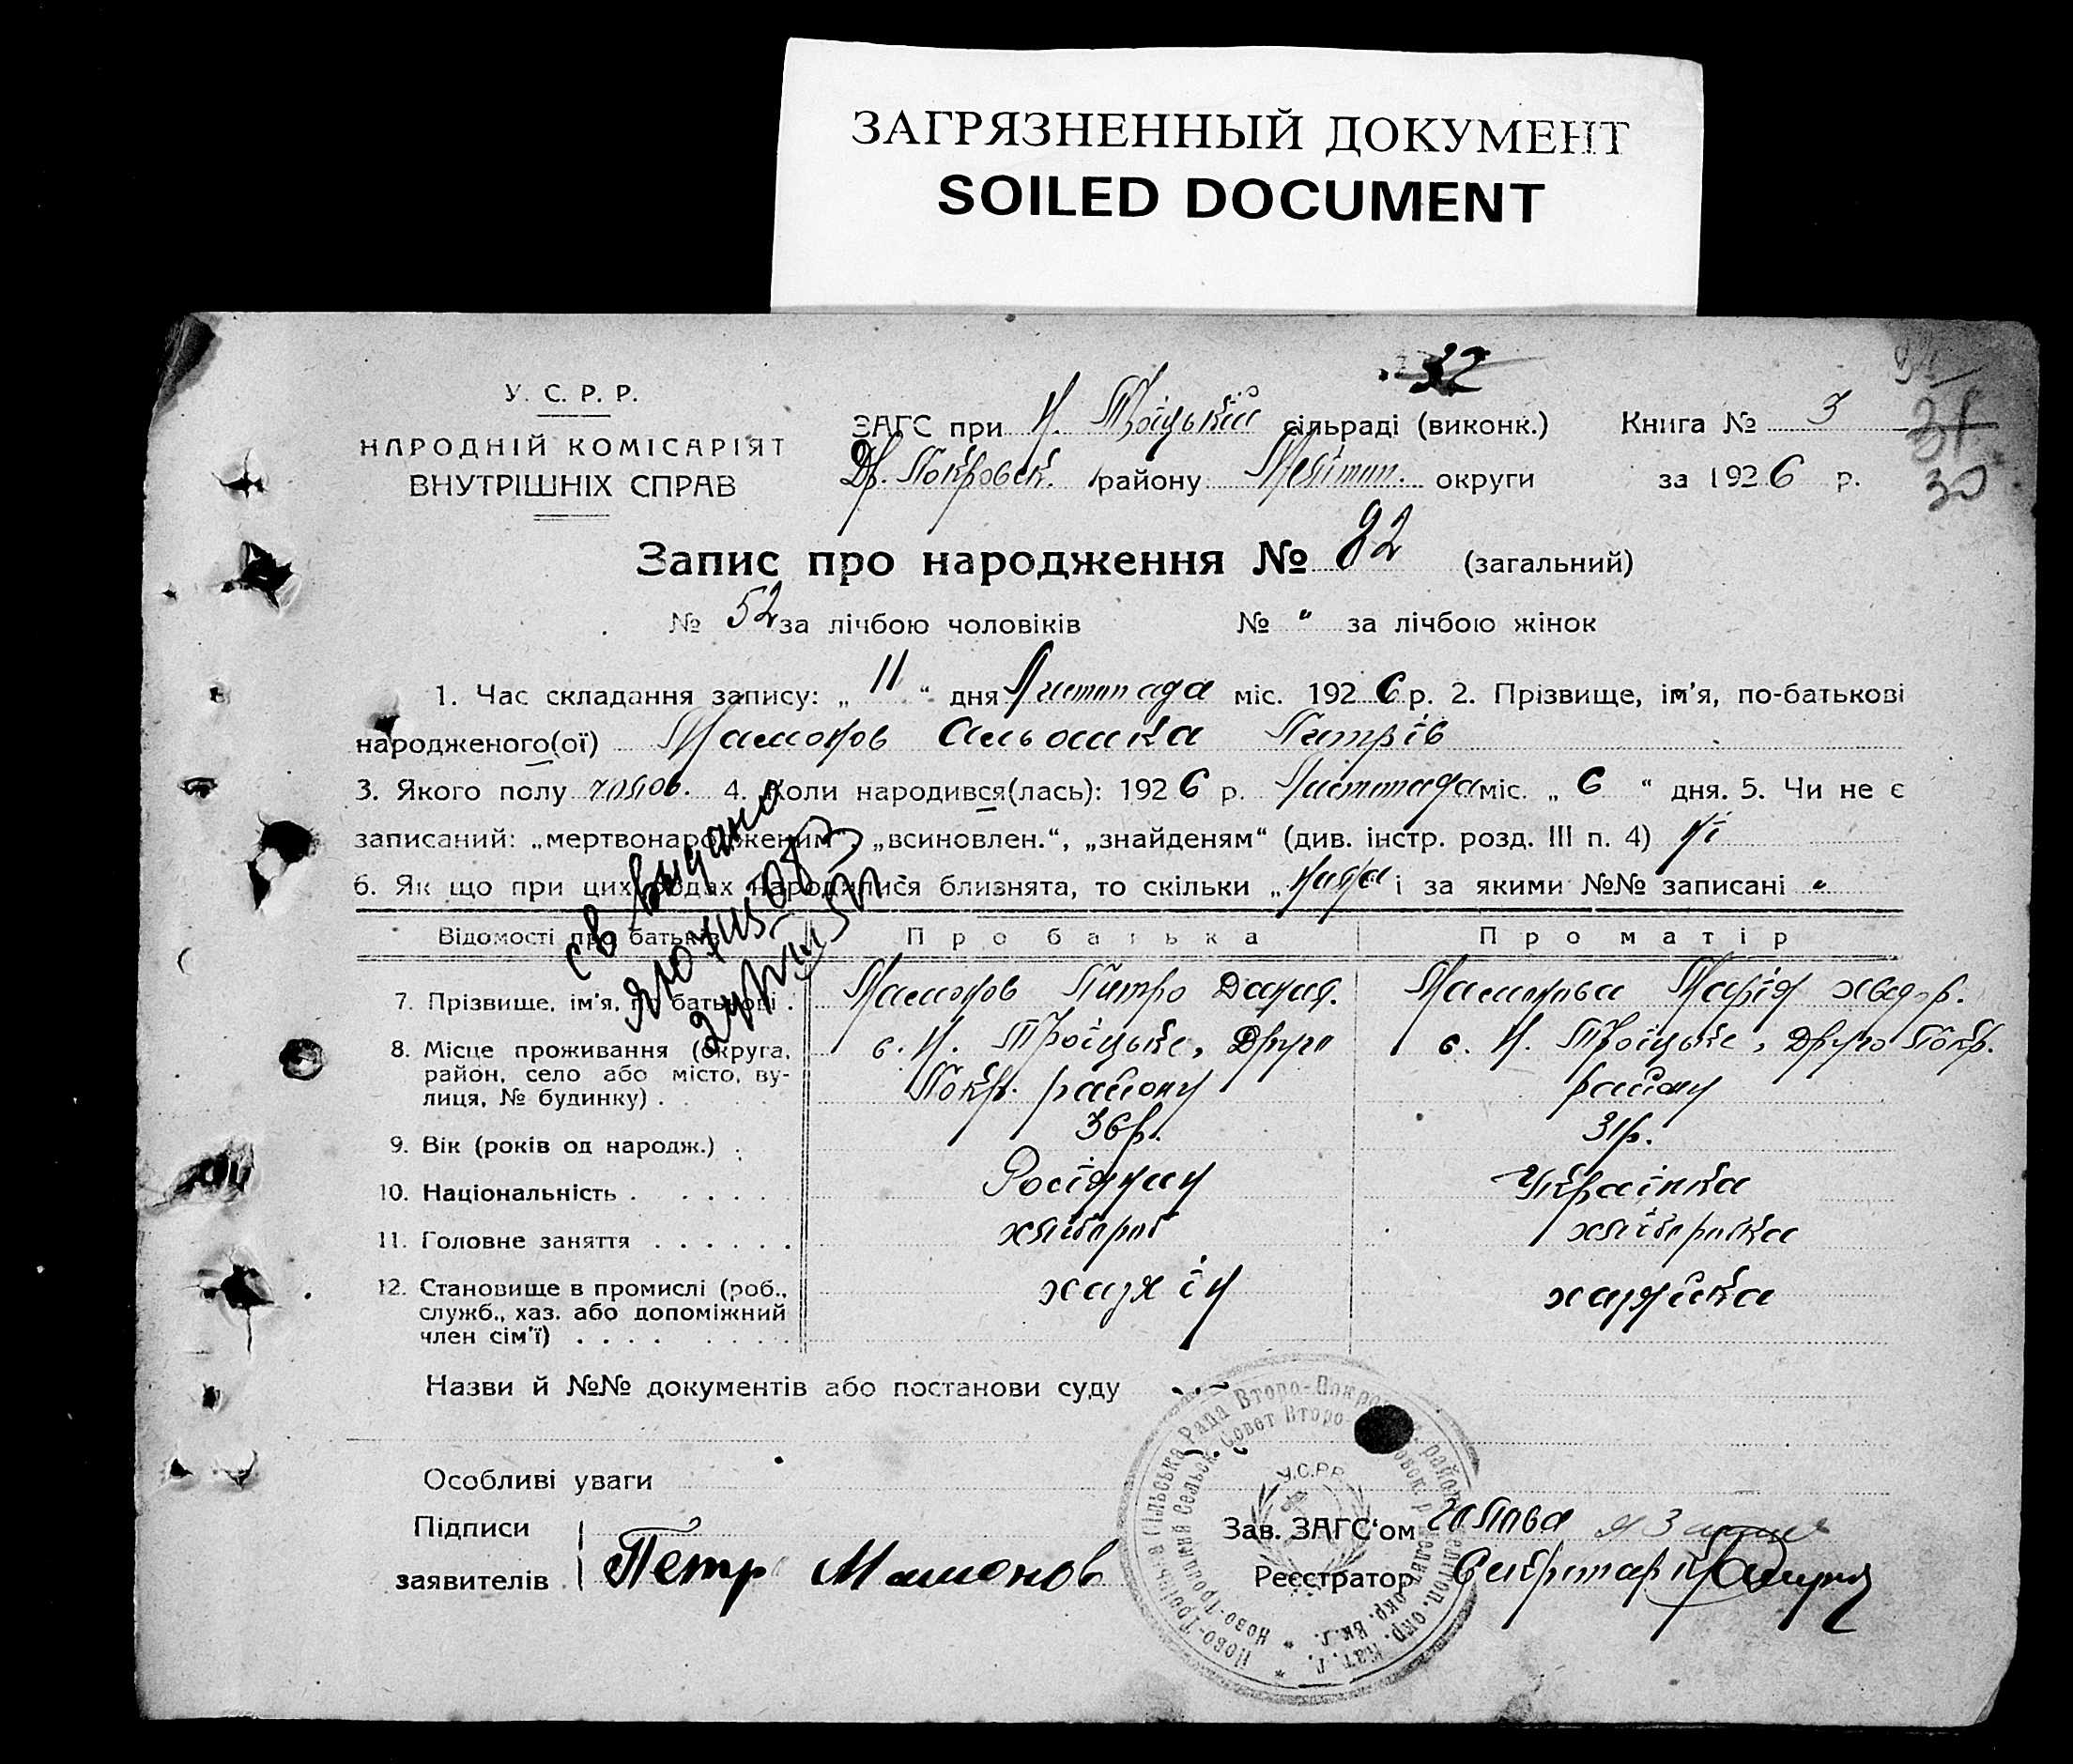 ЗАГРЯЗНЕННЫЙ ДОКУМЕНТ
SOILED DOCUMENT
32
31
30
У. С. Р. Р.
НАРОДНІЙ КОМІСАРІЯТ
ВНУТРІШНІХ СПРАВ
ЗАГС при Н. Троїцькій сільраді (виконк.) Книга № 3
Др. Покровськ. району Меліт. округи за 1926 р.
Запис про народження № 82 (загальний)
№ 52 за лічбою чоловіків № " за лічбою жінок
1. Час складання запису: „ 11 “ дня Листопада міс. 1926 р. 2. Прізвище, ім’я, по-батькові
народженого(ої) Мамонов Альошка Петрів
3. Якого полу чолов. 4. Коли народився(лась): 1926 р. Листопада міс. „ 6 “ дня. 5. Чи не є
записаний: „мертвонародженим“, „всиновлен.“, „знайденям“ (див. інстр. розд. III п. 4) Ні
6. Як що при цих родах народилися близнята, то скільки „ і за якими №№ записані "
св видано
Відомості про батьків Про батька Про матір
7. Прізвище, ім’я, по батькові . Мамонов Петро Данил. Мамонова Марія Хведор.
8. Місце проживання (округа, с. Н. Троїцьке, Друго с. Н. Троїцьке, Друго Покр.
район, село або місто, ву- Покр. району району
лиця, № будинку) .
9. Вік (років од народж.) . 36 р. 31 р.
10. Національність . . . . . . Росіянин Українка
11. Головне заняття . . . . . . хлібороб хліборобка
12. Становище в промислі (роб., хазяїн хазяйка
служб., хаз. або допоміжний
член сім’ї) . . . . . . . .
Назви й №№ документів або постанови суду
Особливі уваги
Підписи
заявителів Петр Мамонов
Зав. ЗАГС’ом голова
Реєстратор Секретар
Ново-Троїцька Сільська Рада Второ-Покровськ. району Мелітоп. окр. Кат. Г.
Ново-Троицкий Сельск. Совет Второ-Покровск. р. Мелит. окр. Вк.Г.
У.С.Р.Р.